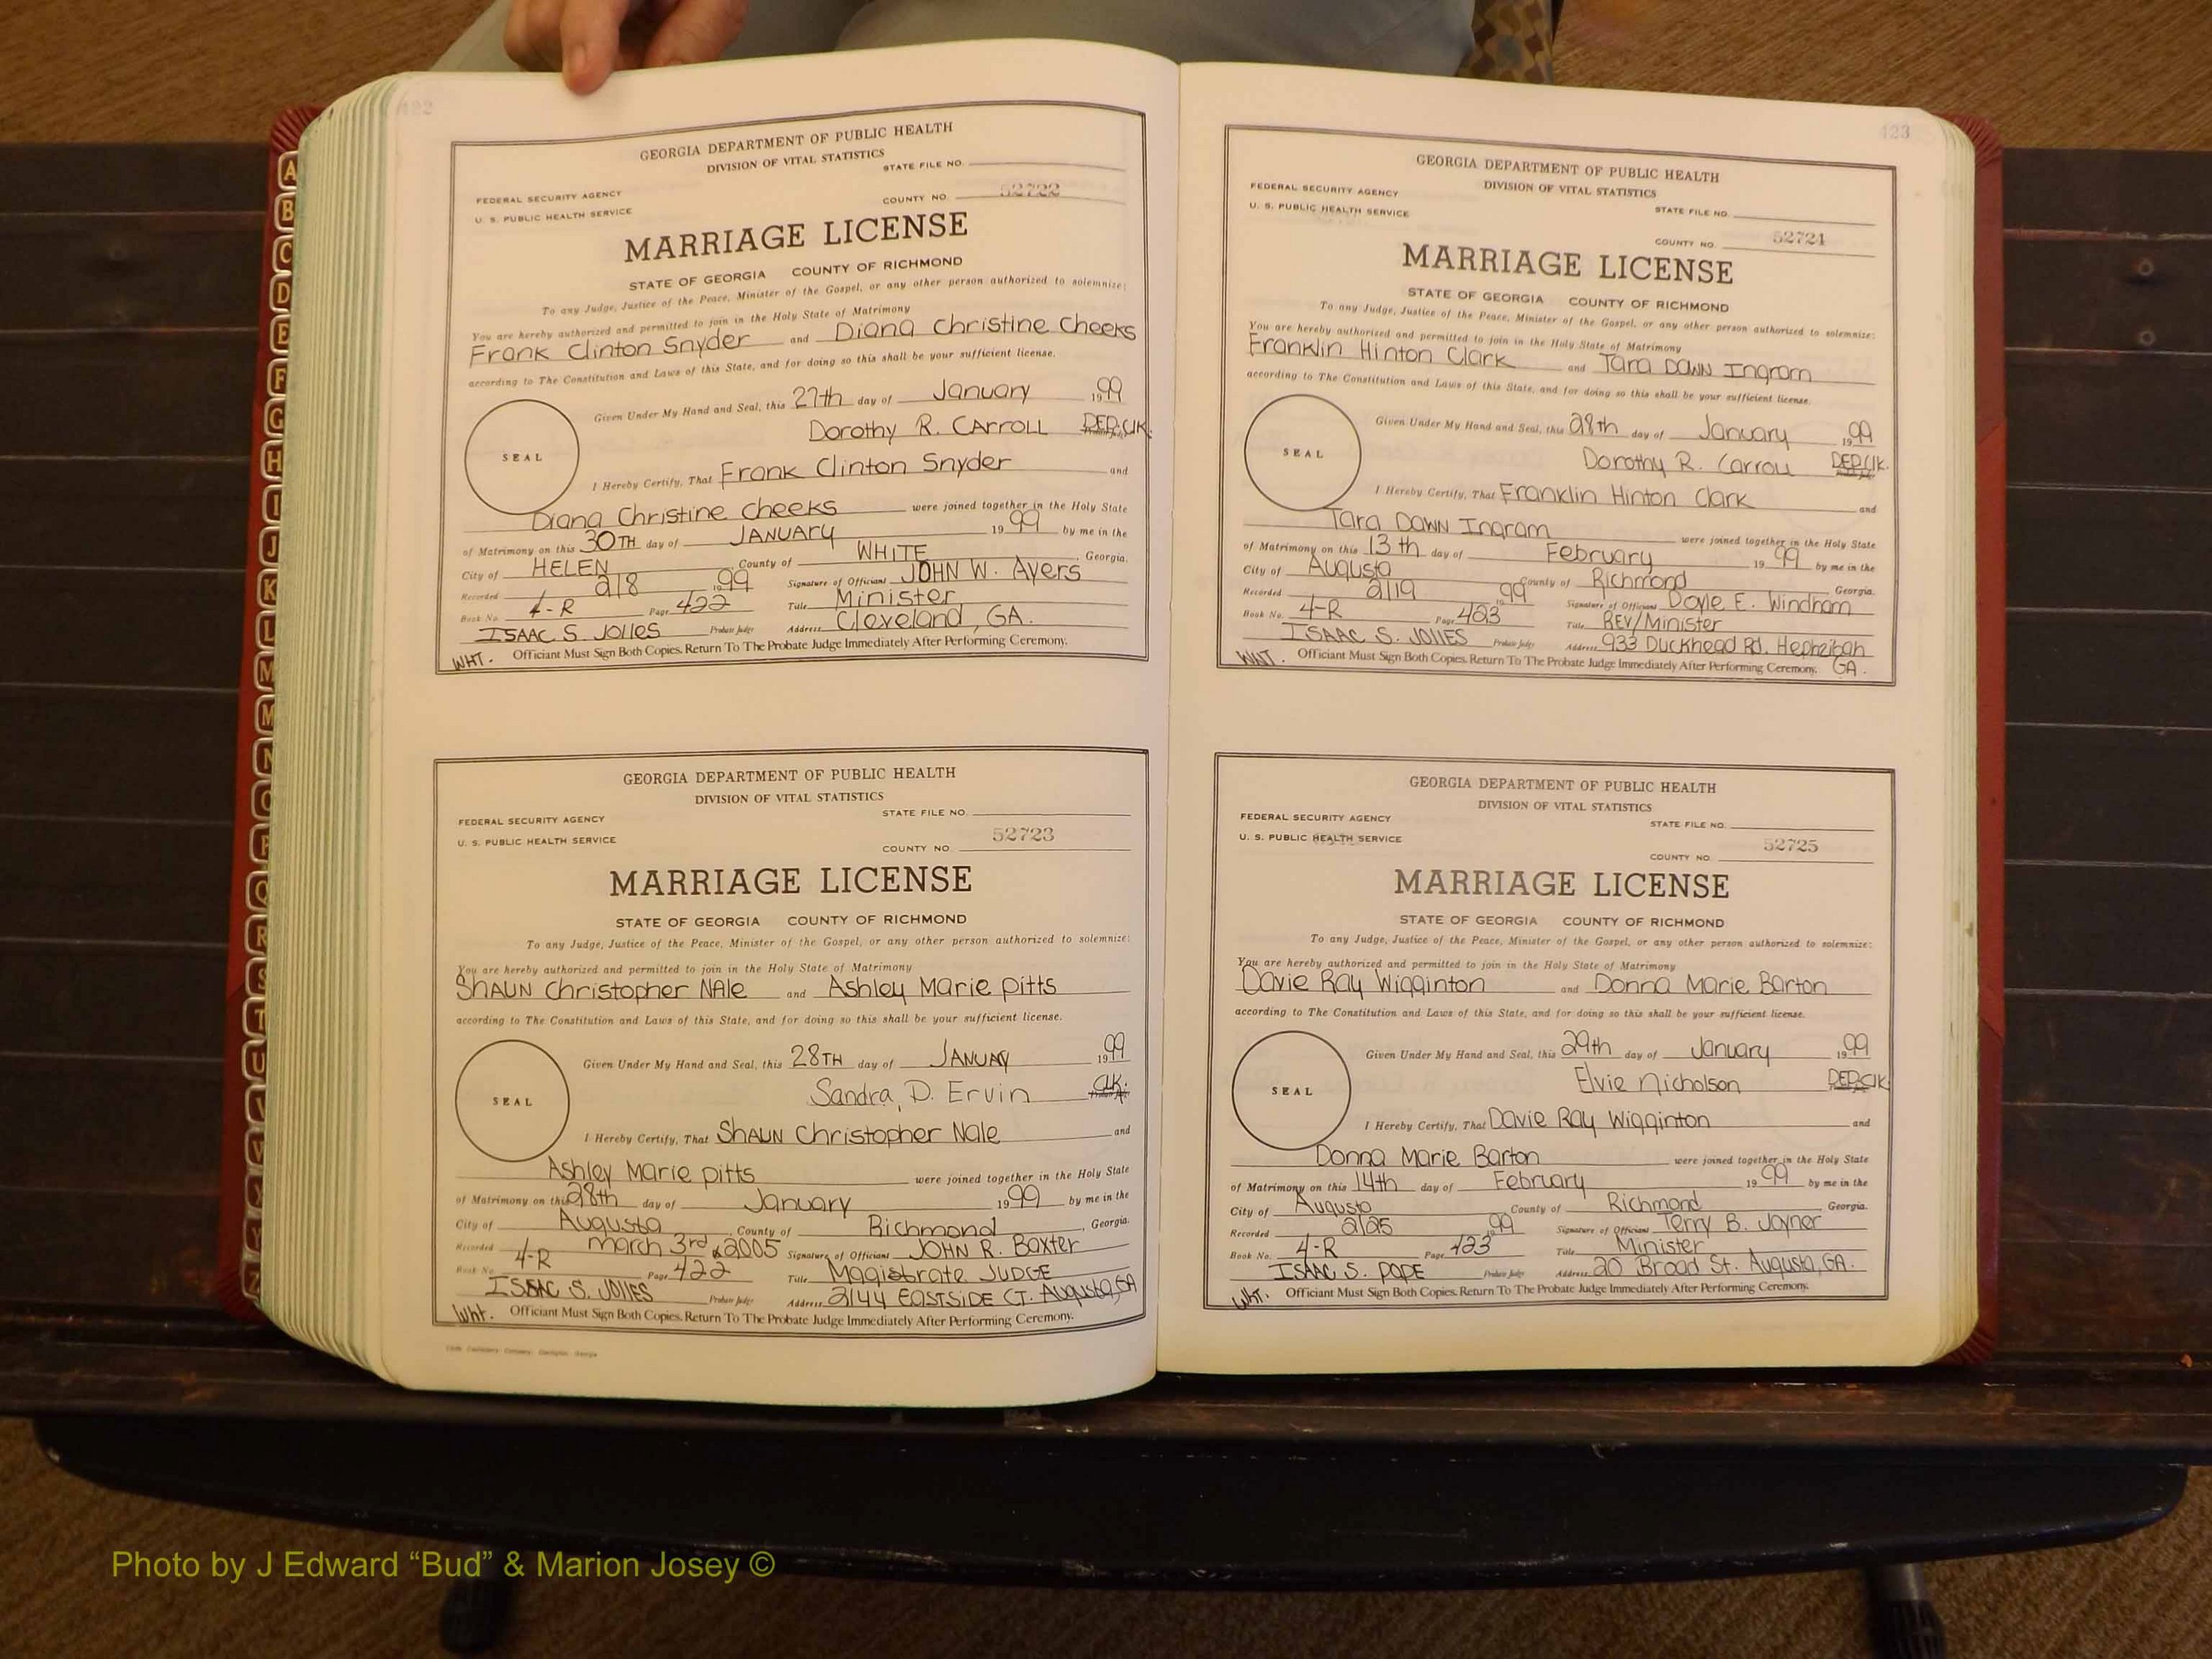 422
GEORGIA DEPARTMENT OF PUBLIC HEALTH
DIVISION OF VITAL STATISTICS
STATE FILE NO.
FEDERAL SECURITY AGENCY
U. S. PUBLIC HEALTH SERVICE
COUNTY NO. 52722
MARRIAGE LICENSE
STATE OF GEORGIA COUNTY OF RICHMOND
To any Judge, Justice of the Peace, Minister of the Gospel, or any other person authorized to solemnize:
You are hereby authorized and permitted to join in the Holy State of Matrimony
Frank Clinton Snyder and Diana Christine Cheeks
according to The Constitution and Laws of this State, and for doing so this shall be your sufficient license.
Given Under My Hand and Seal, this 27th day of January 1999
Dorothy R. CARROLL DEP. CLK.
SEAL
I Hereby Certify, That Frank Clinton Snyder and
Diana Christine Cheeks were joined together in the Holy State
of Matrimony on this 30TH day of JANUARY 1999 by me in the
City of HELEN County of WHITE, Georgia.
Recorded 2/8 1999 Signature of Officiant JOHN W. Ayers
Book No. 4-R Page 422 Title Minister
ISAAC S. JOlles Probate Judge Address Cleveland, GA.
WHT. Officiant Must Sign Both Copies. Return To The Probate Judge Immediately After Performing Ceremony.
GEORGIA DEPARTMENT OF PUBLIC HEALTH
DIVISION OF VITAL STATISTICS
STATE FILE NO.
FEDERAL SECURITY AGENCY
U. S. PUBLIC HEALTH SERVICE
COUNTY NO. 52723
MARRIAGE LICENSE
STATE OF GEORGIA COUNTY OF RICHMOND
To any Judge, Justice of the Peace, Minister of the Gospel, or any other person authorized to solemnize:
You are hereby authorized and permitted to join in the Holy State of Matrimony
SHAUN Christopher NAle and Ashley Marie Pitts
according to The Constitution and Laws of this State, and for doing so this shall be your sufficient license.
Given Under My Hand and Seal, this 28TH day of JANUAY 1999
Sandra D. Ervin CLK.
SEAL
I Hereby Certify, That SHAUN Christopher Nale and
Ashley Marie Pitts were joined together in the Holy State
of Matrimony on this 28th day of January 1999 by me in the
City of Augusta County of Richmond, Georgia.
Recorded March 3rd 2005 Signature of Officiant JOHN R. Baxter
Book No. 4-R Page 422 Title Magistrate JUDGE
ISAAC S. JOlles Probate Judge Address 2144 EASTSIDE CT. Augusta, GA
Wht. Officiant Must Sign Both Copies. Return To The Probate Judge Immediately After Performing Ceremony.
423
GEORGIA DEPARTMENT OF PUBLIC HEALTH
DIVISION OF VITAL STATISTICS
FEDERAL SECURITY AGENCY
U. S. PUBLIC HEALTH SERVICE
STATE FILE NO.
COUNTY NO. 52724
MARRIAGE LICENSE
STATE OF GEORGIA COUNTY OF RICHMOND
To any Judge, Justice of the Peace, Minister of the Gospel, or any other person authorized to solemnize:
You are hereby authorized and permitted to join in the Holy State of Matrimony
Franklin Hinton Clark and Tara DAWN Ingram
according to The Constitution and Laws of this State, and for doing so this shall be your sufficient license.
Given Under My Hand and Seal, this 28th day of January 1999
Dorothy R. Carroll DEP. Clk.
SEAL
I Hereby Certify, That Franklin Hinton Clark and
Tara DAWN Ingram were joined together in the Holy State
of Matrimony on this 13th day of February 1999 by me in the
City of Augusta County of Richmond Georgia.
Recorded 2/19 1999 Signature of Officiant Doyle E. Windham
Book No. 4-R Page 423 Title REV/Minister
ISAAC S. JOllES Probate Judge Address 933 Duckhead Rd. Hephzibah
WHT. Officiant Must Sign Both Copies. Return To The Probate Judge Immediately After Performing Ceremony. GA.
GEORGIA DEPARTMENT OF PUBLIC HEALTH
DIVISION OF VITAL STATISTICS
FEDERAL SECURITY AGENCY
STATE FILE NO.
U. S. PUBLIC HEALTH SERVICE
COUNTY NO. 52725
MARRIAGE LICENSE
STATE OF GEORGIA COUNTY OF RICHMOND
To any Judge, Justice of the Peace, Minister of the Gospel, or any other person authorized to solemnize:
You are hereby authorized and permitted to join in the Holy State of Matrimony
Davie Ray Wigginton and Donna Marie Barton
according to The Constitution and Laws of this State, and for doing so this shall be your sufficient license.
Given Under My Hand and Seal, this 29th day of January 1999
Elvie Nicholson DEP. Clk
SEAL
I Hereby Certify, That Davie Ray Wigginton and
Donna Marie Barton were joined together in the Holy State
of Matrimony on this 14th day of February 1999 by me in the
City of Augusta County of Richmond Georgia.
Recorded 2/25 1999 Signature of Officiant Terry B. Joyner
Book No. 4-R Page 423 Title Minister
ISAAC S. POPE Probate Judge Address 20 Broad St. Augusta, GA.
Wht. Officiant Must Sign Both Copies. Return To The Probate Judge Immediately After Performing Ceremony.
A
B
C
D
E
F
G
H
I
J
K
L
M
M
N
O
P
Q
R
S
T
U
V
W
X
Y
Z
Photo by J Edward “Bud” & Marion Josey ©